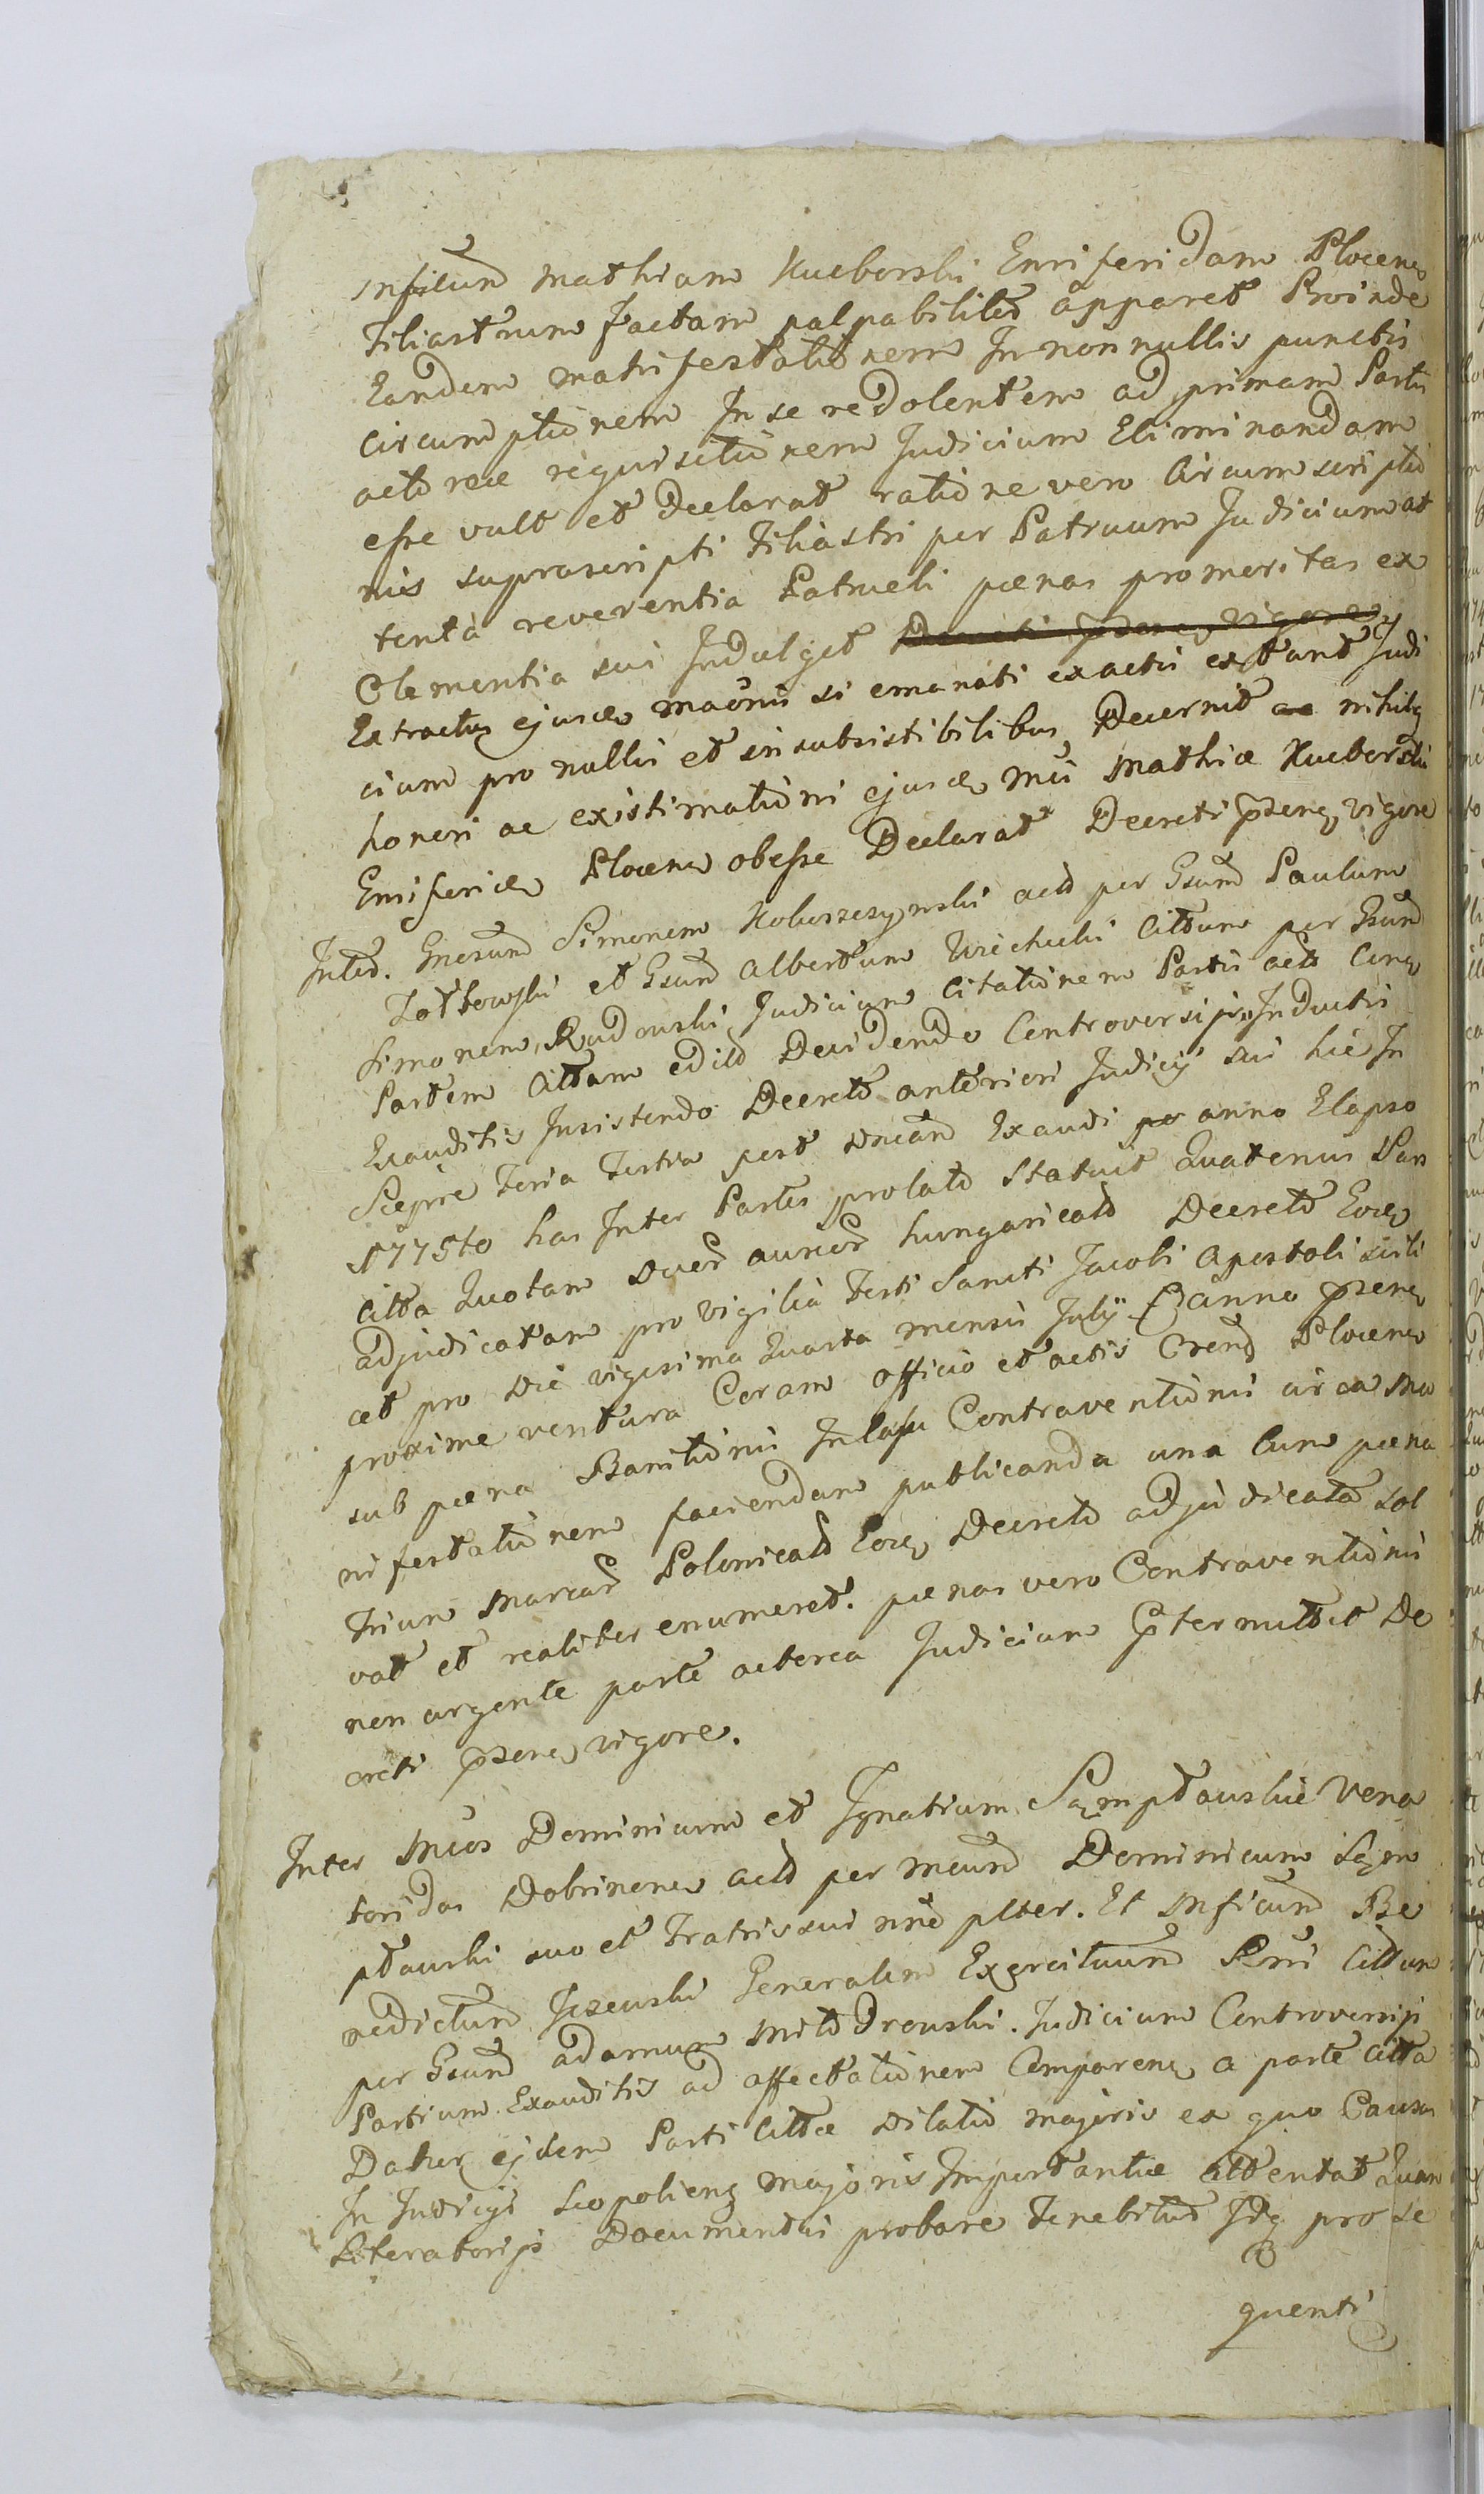 Mficum Mathiam Kucborski Ensiferidam Plocens
Filiastrum factam palpabiliter apparet Proinde
Eandem manifestationem In nonnullis punctis
circumptionem In se redolentem ad primam Partis
actoreae requisitionem Judicium Eliminandam
esse vult et Declarat ratione vero Circumscriptio
nis suprascripti Filiastri per Patruum Judicium at
tenta reverentia Patrueli poenas promeritas ex
Clementia sui Indulget Decreti psens vigore
Extractus ejusce macnis si emanati exactis extant Judi
cium pro nullis et insubsistibilibus Decernit ac nihilq
honori ac existimationi ejusce Mci Mathiae Kucborski
Ensiferidae Plocens obesse Declarat Decreti psens vigore
Inter. Gnesum Simonem Kobuszczynski acto per Gsum Paulum
Zottowski et Gsum Albertum Wichucki Cittum per Gsum
Simonem Rudowski Judicium Citationem Partis acto Cons
Partem Cittam edito Decidendo Controversijs Inductis
Exauditis Insistendo Decreto anteriori Judicij sui hic In
Sieprc Feria Tertia post Dncam Exaudi anno Elapso
1775to has Inter Partes prolato Statuit Quatenus Pars
Citta Quotam Ducor aureor hungaricalo Decreto Eoce
adjudicatam pro vigilia Festi Sancti Jacobi Apostoli scili
cet pro Die vigesima Quarta mensis Julij anno psens
proxime ventura Coram officio et actis Crens Plocens
sub poena Banitionis In lapsu Contraventionis circa Ma
nifestationem faciendam publicanda una Cum poena
Trium Marcar Polonicalo Eoce Decreto adjudicata sol
vat et realiter enumeret. poenas vero Contraventionis
non urgente parte actorea Judicium Ptermittit De
creti psens vigore.
Inter Mcos Dominicum et Ignatium Sąmptawskie Vena
toridas Dobrinens acto per Mcum Dominicum Sąm
ptawski suo et Fratris sui nne plter. Et Mficum Be
nedictum Jezewski Generalem Exercituum Rni Cittum
per Gsum Adamum Mlodrowski. Judicium Controversijs
Partium Exauditis ad affectationem Comparens a parte Citta
Datur ejdem Parti Cittae Dilatio majoris ex quo Causa
In Judicijs Scopoliens Majoris Importantiae attentat Quam
Literatorijs Documentis probare Tenebitur Idq pro se
quenti